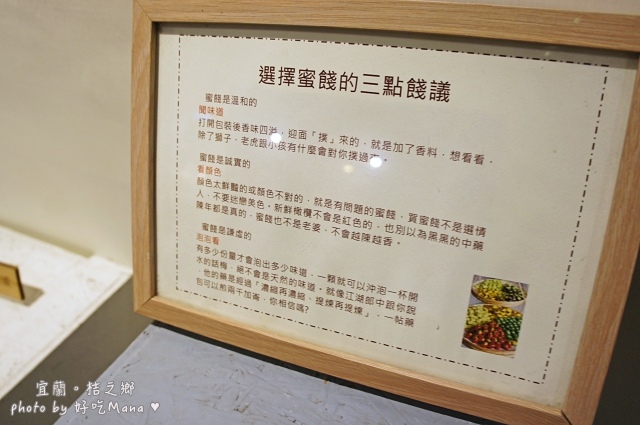 選擇蜜餞的三點餞議
蜜餞是溫和的
聞味道
打開包裝後香味四溢，迎面「撲」來的，就是加了香料，想看看，
除了獅子、老虎跟小孩有什麼會對你撲過來。
蜜餞是誠實的
看顏色
顏色太鮮豔的或顏色不對的，就是有問題的蜜餞，買蜜餞不是選情
人，不要迷戀美色。新鮮橄欖不會是紅色的，也別以為黑黑的中藥
陳年都是真的，蜜餞也不是老婆，不會越陳越香。
蜜餞是謙虛的
泡泡看
有多少份量才會泡出多少味道，一顆就可以沖泡一杯開
水的話梅，絕不會是天然的味道。就像江湖郎中跟你說
，他的藥是經過「濃縮再濃縮，提煉再提煉」，一帖藥
包可以煎兩千加崙，你相信嗎？
宜蘭。桔之鄉
photo by 好吃Mana ♥